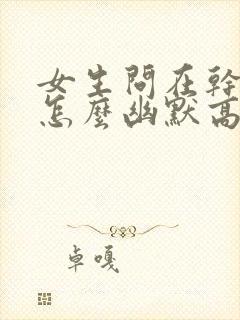 女生問在幹
怎麼幽默高
卓嘎